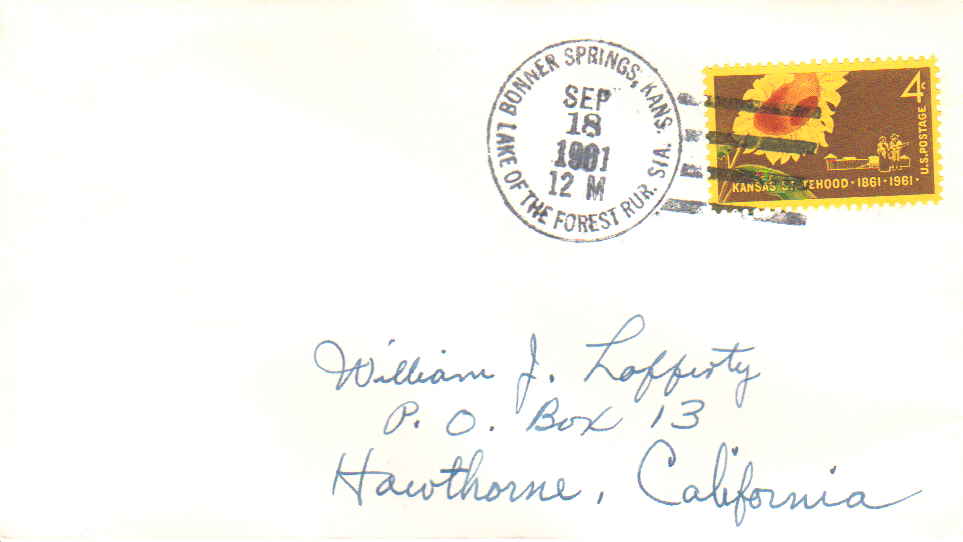 BONNER SPRINGS, KANS.
LAKE OF THE FOREST RUR. STA.
SEP
18
1961
12 M
4c
U.S. POSTAGE
KANSAS STATEHOOD · 1861 · 1961 ·
William J. Lofferty
P. O. Box 13
Hawthorne, California